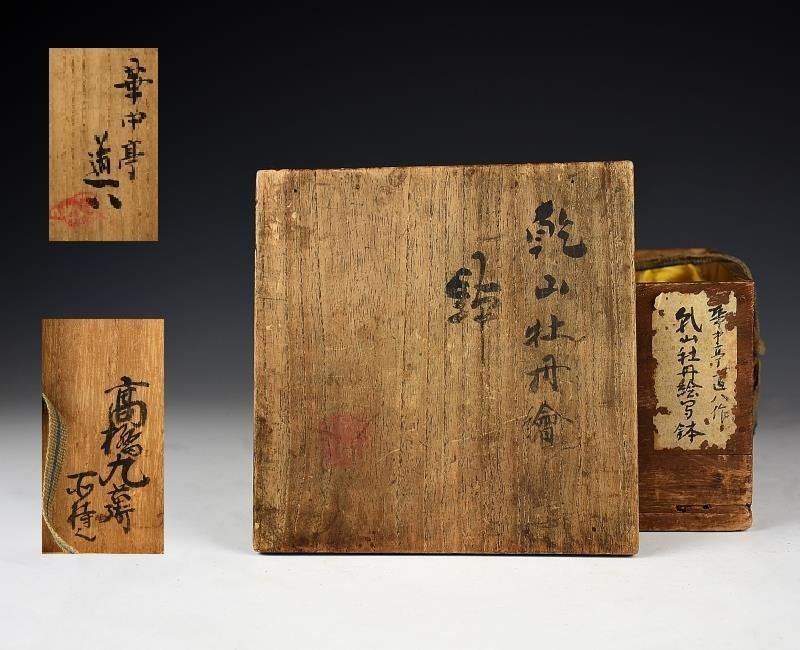 華中亭
道八
乾山牡丹繪
鉢
華中亭道八作
乾山牡丹絵写鉢
高橋九
所持